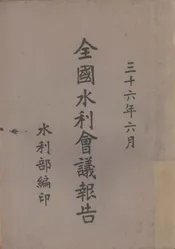 三十六年六月
全國水利會議報告
水利部編印